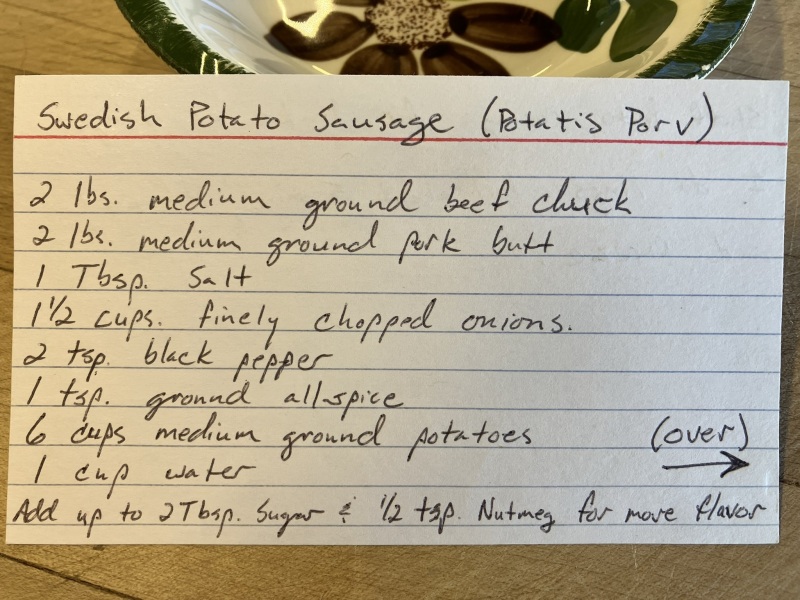 Swedish Potato Sausage (Potatis Porv)
2 lbs. medium ground beef chuck
2 lbs. medium ground pork butt
1 Tbsp. Salt
1 1/2 cups. finely chopped onions.
2 tsp. black pepper
1 tsp. ground allspice
6 cups medium ground potatoes (over)
1 cup water →
Add up to 2 Tbsp. Sugar & 1/2 tsp. Nutmeg for more flavor